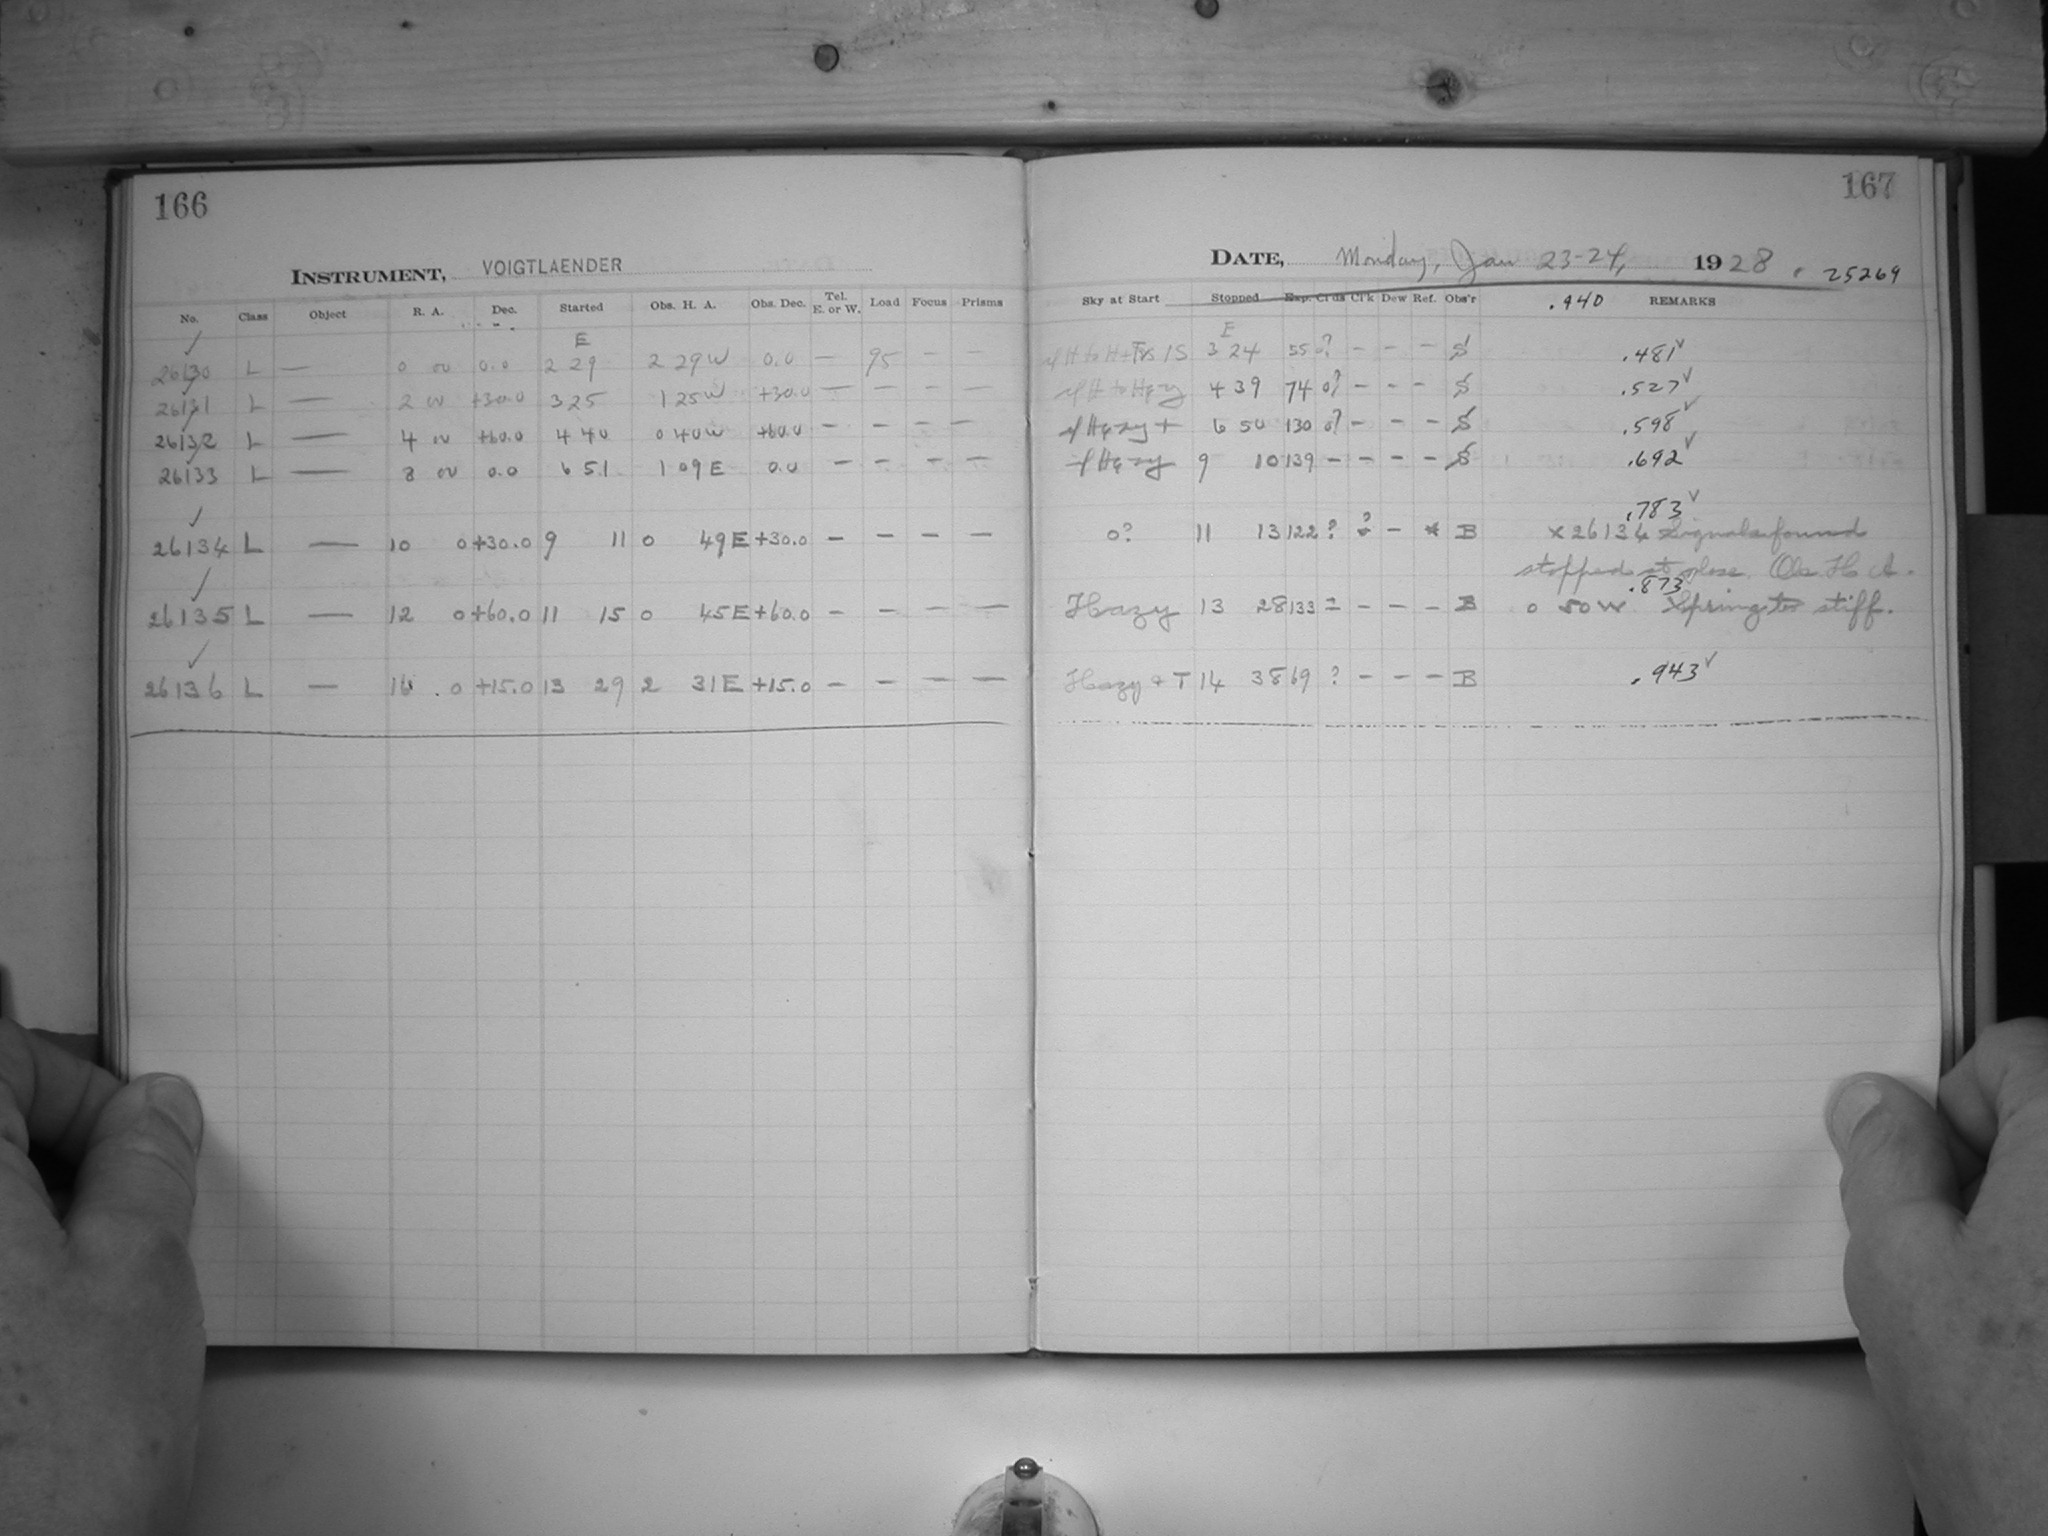 166
INSTRUMENT, VOIGTLAENDER
No. Class Object R. A. Dec. Started Obs. H. A. Obs. Dec. Tel. E. or W. Load Focus Prisms
E
26130 L — 0 00 0.0 2 29 2 29 W 0.0 — 95 — —
26131 L — 2 00 +30.0 3 25 1 25 W +30.0 — — — —
26132 L — 4 00 +60.0 4 40 0 40 W +60.0 — — — —
26133 L — 8 00 0.0 6 51 1 09 E 0.0 — — — —
26134 L — 10 0 +30.0 9 11 0 49 E +30.0 — — — —
26135 L — 12 0 +60.0 11 15 0 45 E +60.0 — — — —
26136 L — 16 0 +15.0 13 29 2 31 E +15.0 — — — —
167
DATE, Monday, Jan 23-24, 1928. 25269
Sky at Start Stopped Exp. Cl'ds Cl'k Dew Ref. Obs'r .440 REMARKS
E
3 24 55 0? — — — S .481
4 39 74 0? — — — S .527
Hazy + 6 50 130 0? — — — S .598
Hazy 9 10 139 — — — — S .692
.783
0? 11 13 122 ? ? — * B × 26134 Signals found
stopped at close. Obs. H. A.
.873
Hazy 13 28 133 — — — B 0 50 W. Spring too stiff.
Hazy + T 14 38 69 ? — — — B .943